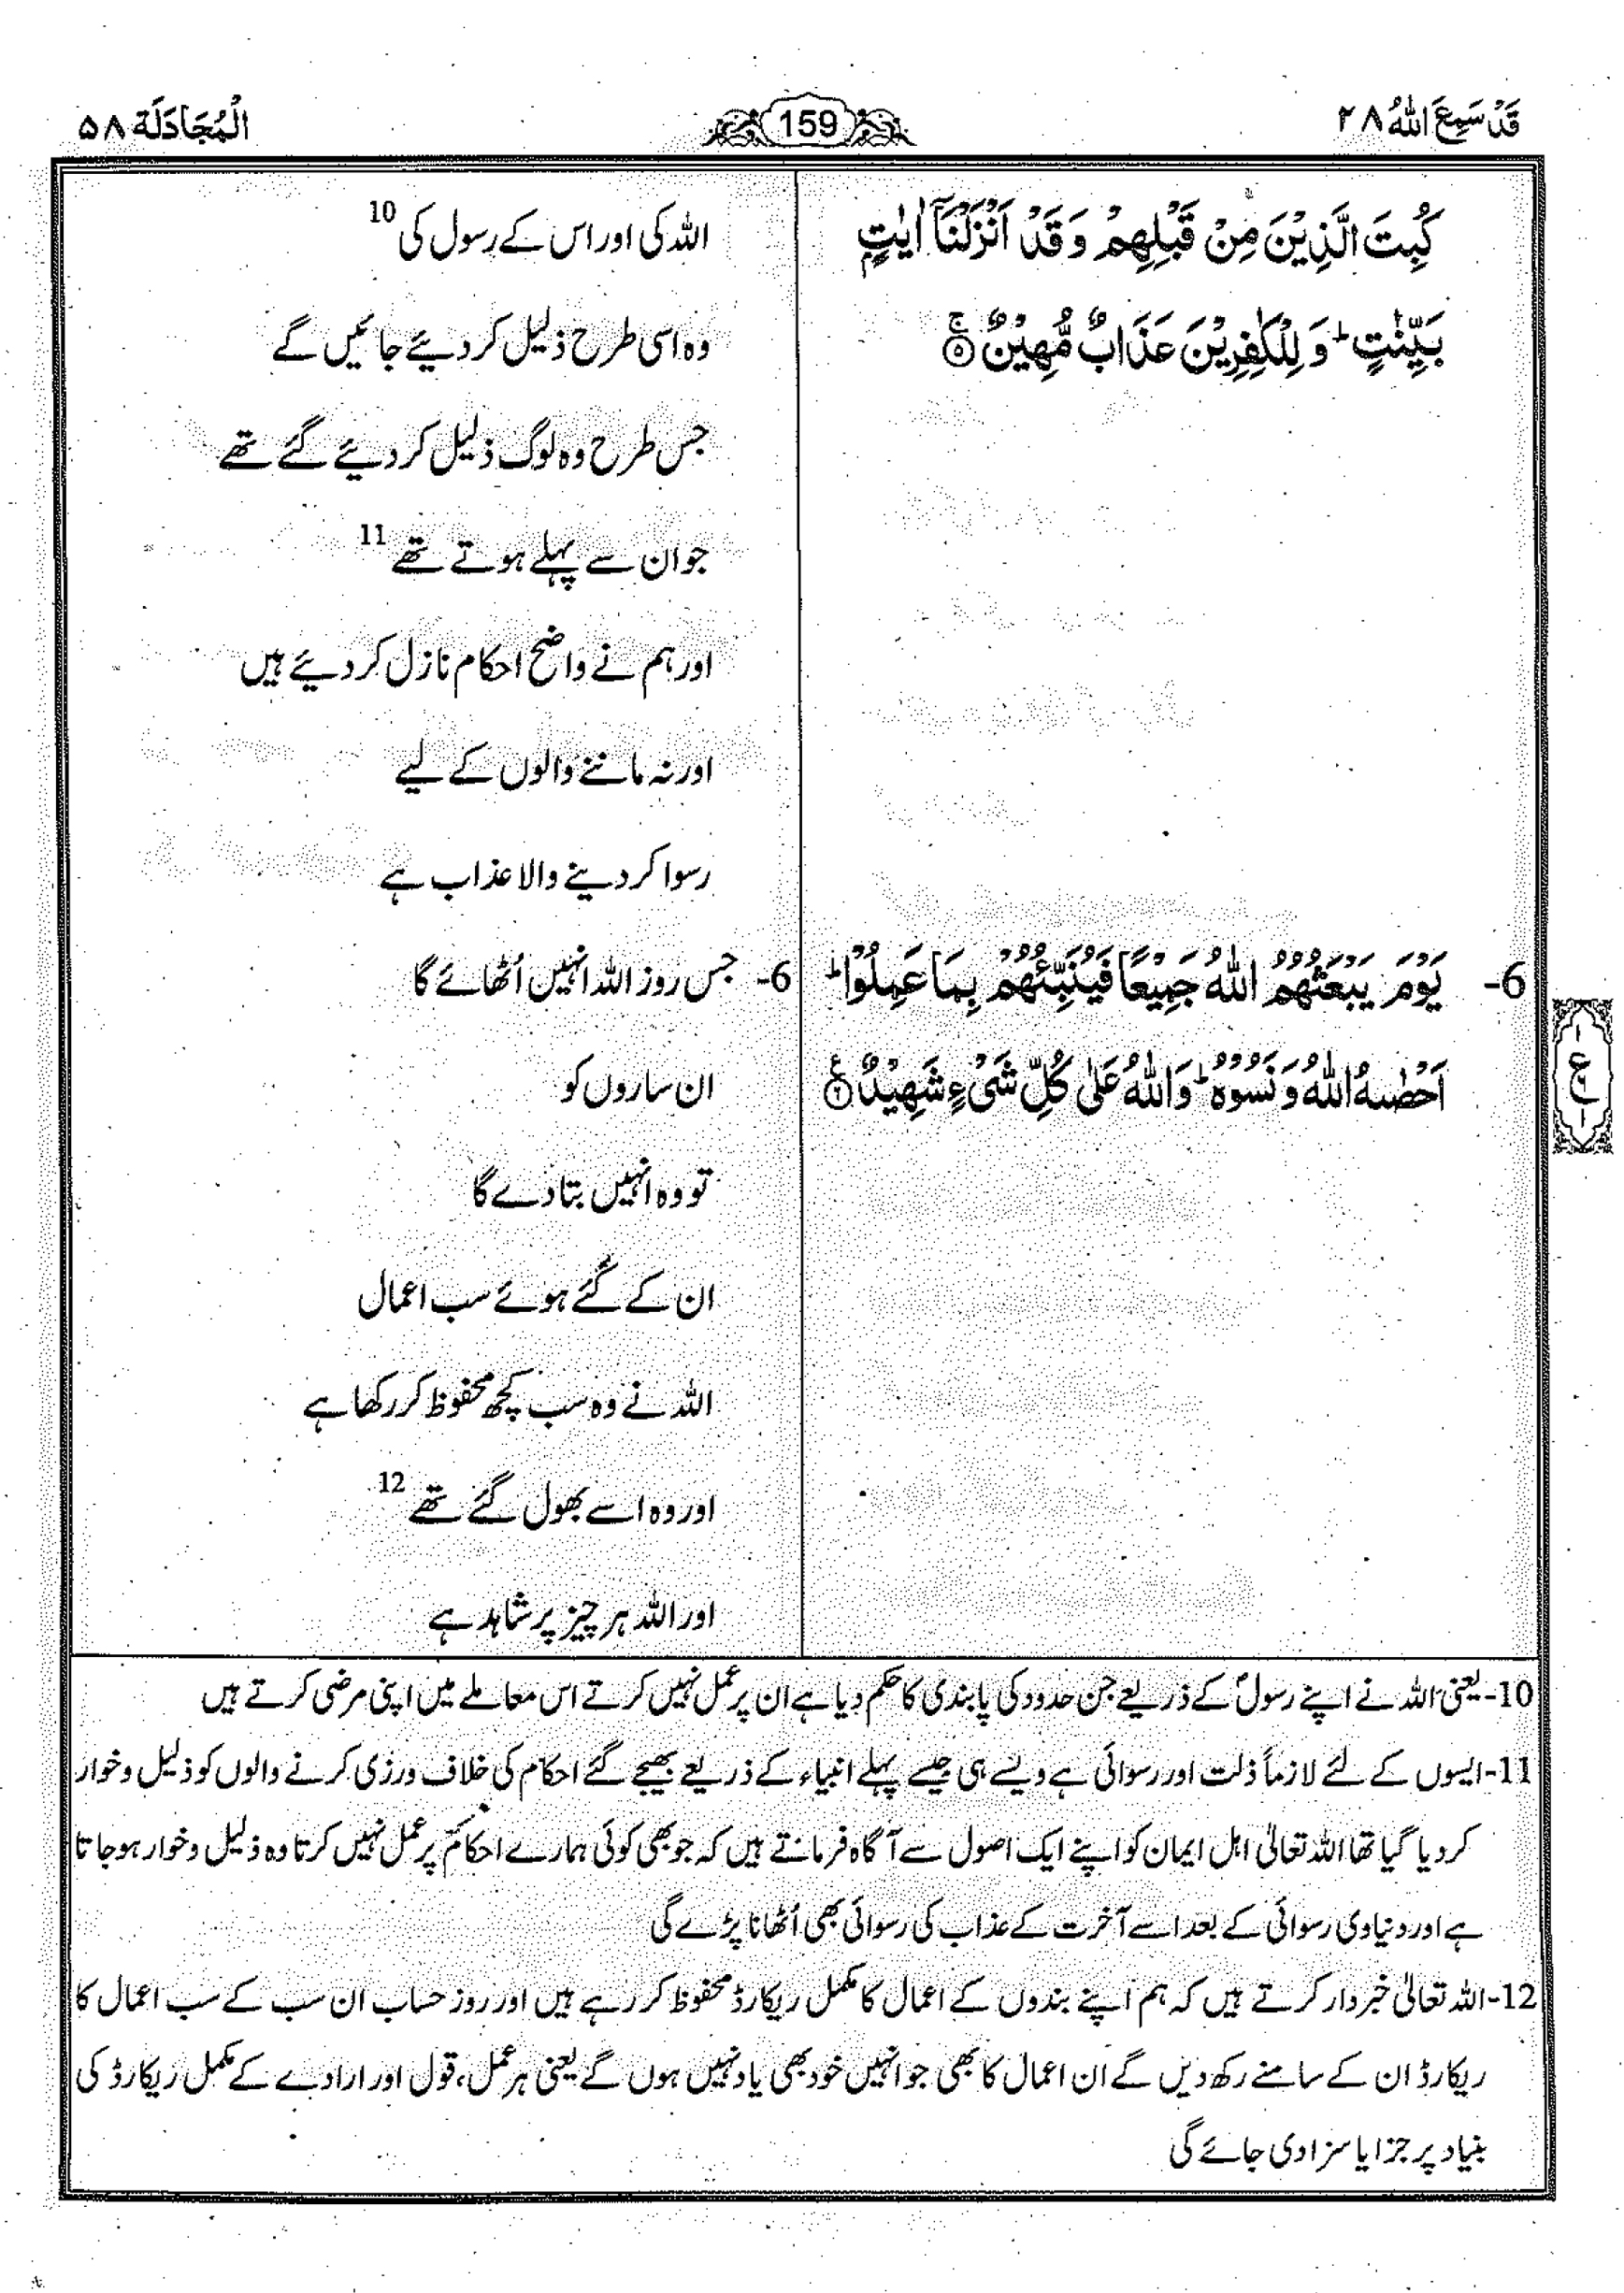 قَدْ سَمِعَ اللّٰهُ ٢٨
159
الْمُجَادَلَة ٥٨
كُبِتَ الَّذِيْنَ مِنْ قَبْلِهِمْ وَ قَدْ اَنْزَلْنَاۤ اٰيٰتٍۭ
بَيِّنٰتٍ ؕ وَ لِلْكٰفِرِيْنَ عَذَابٌ مُّهِيْنٌ ۚ ﴿۵﴾
6- يَوْمَ يَبْعَثُهُمُ اللّٰهُ جَمِيْعًا فَيُنَبِّئُهُمْ بِمَا عَمِلُوْا ؕ
اَحْصٰىهُ اللّٰهُ وَ نَسُوْهُ ؕ وَ اللّٰهُ عَلٰى كُلِّ شَيْءٍ شَهِيْدٌ ﴿۶﴾ ع
اللہ کی اور اس کے رسول کی 10
وہ اسی طرح ذلیل کر دیئے جائیں گے
جس طرح وہ لوگ ذلیل کر دیئے گئے تھے
جو ان سے پہلے ہوتے تھے 11
اور ہم نے واضح احکام نازل کر دیئے ہیں
اور نہ ماننے والوں کے لیے
رسوا کر دینے والا عذاب ہے
6- جس روز اللہ انہیں اُٹھائے گا
ان ساروں کو
تو وہ انہیں بتا دے گا
ان کے کئے ہوئے سب اعمال
اللہ نے وہ سب کچھ محفوظ کر رکھا ہے
اور وہ اسے بھول گئے تھے 12
اور اللہ ہر چیز پر شاہد ہے
ع
10- یعنی اللہ نے اپنے رسولؐ کے ذریعے جن حدود کی پابندی کا حکم دیا ہے ان پر عمل نہیں کرتے اس معاملے میں اپنی مرضی کرتے ہیں
11- ایسوں کے لئے لازماً ذلت اور رسوائی ہے ویسے ہی جیسے پہلے انبیاء کے ذریعے بھیجے گئے احکام کی خلاف ورزی کرنے والوں کو ذلیل و خوار
کر دیا گیا تھا اللہ تعالیٰ اہل ایمان کو اپنے ایک اصول سے آگاہ فرماتے ہیں کہ جو بھی کوئی ہمارے احکام پر عمل نہیں کرتا وہ ذلیل و خوار ہو جاتا
ہے اور دنیاوی رسوائی کے بعد اسے آخرت کے عذاب کی رسوائی بھی اُٹھانا پڑے گی
12- اللہ تعالیٰ خبردار کرتے ہیں کہ ہم اپنے بندوں کے اعمال کا مکمل ریکارڈ محفوظ کر رہے ہیں اور روز حساب ان سب کے سب اعمال کا
ریکارڈ ان کے سامنے رکھ دیں گے ان اعمال کا بھی جو انہیں خود بھی یاد نہیں ہوں گے یعنی ہر عمل، قول اور ارادے کے مکمل ریکارڈ کی
بنیاد پر جزا یا سزا دی جائے گی